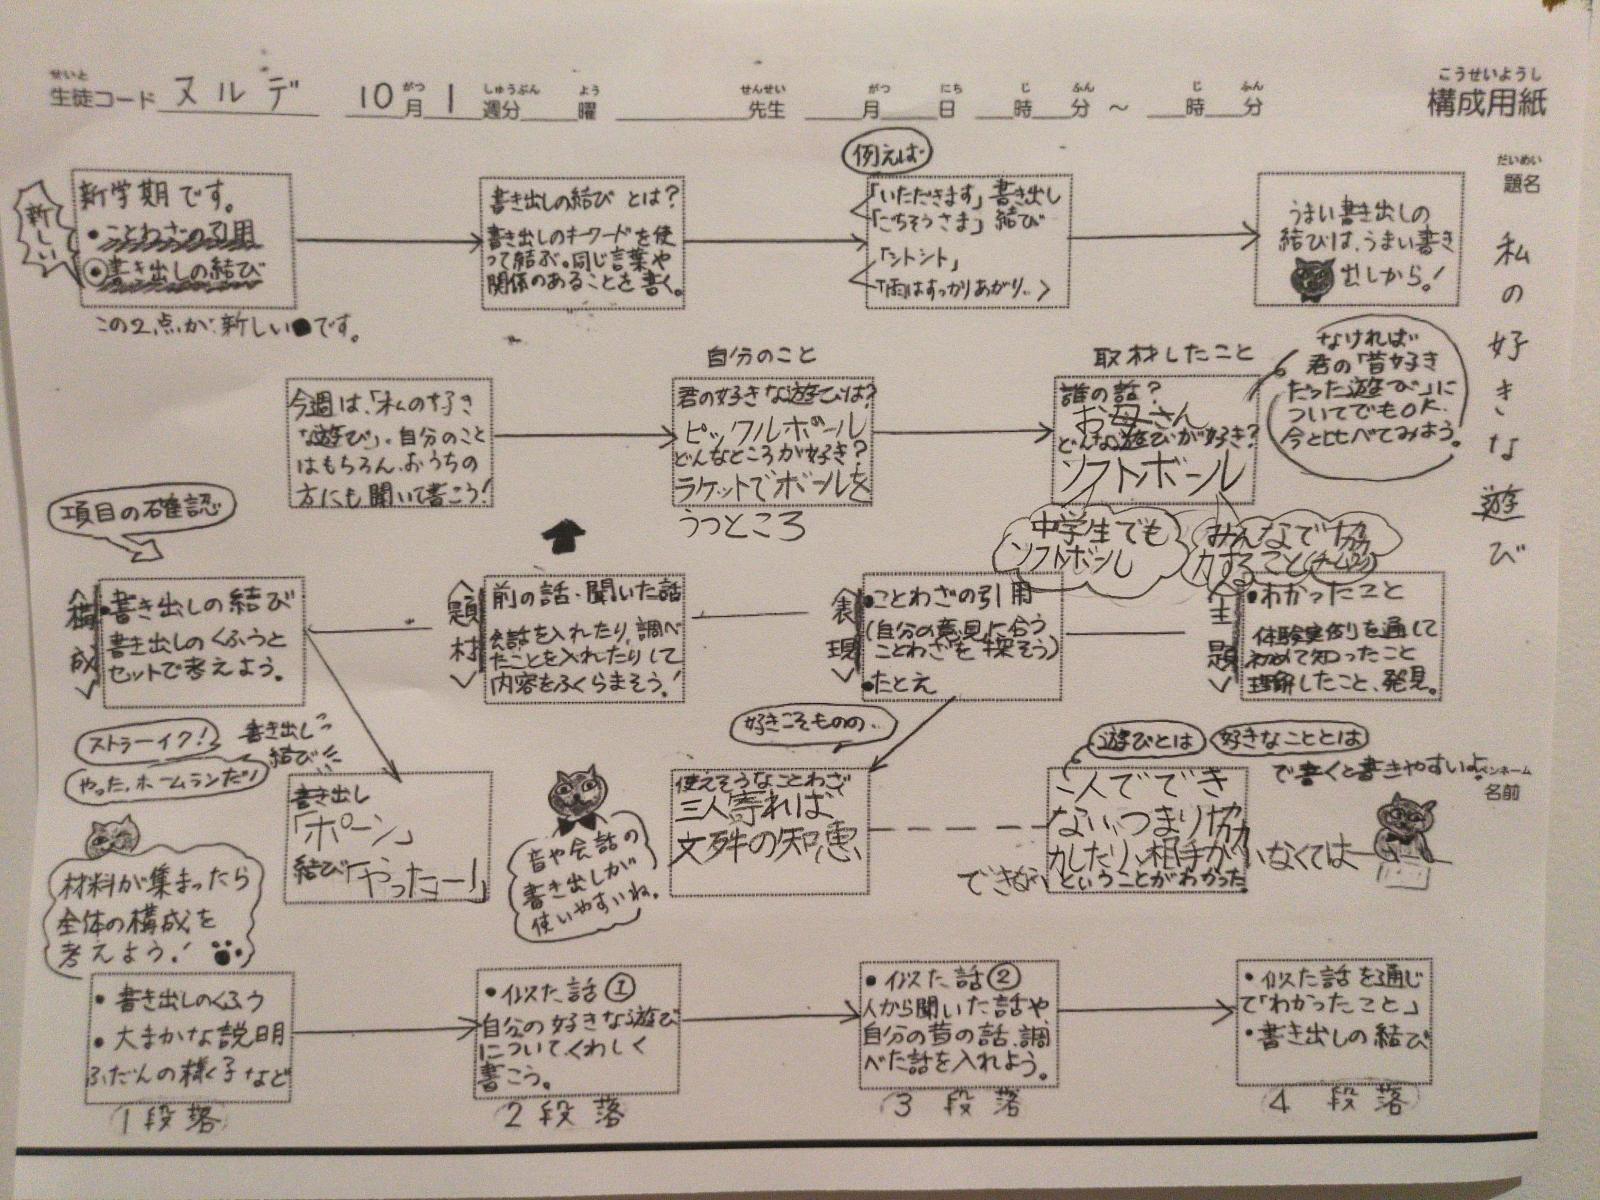 せいと
生徒コード ヌルデ 10月 1週分 曜 先生 月 日 時 分 ～ 時 分
がつ しゅうぶん よう せんせい がつ にち じ ふん じ ふん
こうせいようし
構成用紙
だいめい
題名
私の好きな遊び
新しい
新学期です。
・ことわざの引用
書き出しの結び
この2点が新しい●です。
書き出しの結びとは?
書き出しのキーワードを使
って結ぶ。同じ言葉や
関係のあることを書く。
例えば
「いただきます」書き出し
「ごちそうさま」結び
「シトシト」
「雨はすっかりあがり..」
うまい書き出しの
結びは、うまい書き
出しから!
今週は、「私の好き
な遊び」。自分のこと
はもちろん、おうちの
方にも聞いて書こう!
自分のこと
君の好きな遊びは?
ピックルボール
どんなところが好き?
ラケットでボールを
うつところ
取材したこと
誰の話?
お母さん
どんな遊びが好き?
ソフトボール
なければ
君の「昔好き
だった遊び」に
ついてでもOK.
今と比べてみよう。
中学生でも
ソフトボール
みんなで協
力すること
項目の確認
構成
・書き出しの結び
書き出しのくふうと
セットで考えよう。
題材
前の話・聞いた話
会話を入れたり、調べ
たことを入れたりして
内容をふくらまそう!
表現
・ことわざの引用
(自分の意見に合う
ことわざを探そう)
・たとえ
主題
・わかったこと
体験実例を通して
初めて知ったこと
理解したこと、発見。
ストラーイク!
やった、ホームランだ!
書き出し
結び
書き出し
「ポーン」
結び「やったー!」
音や会話の
書き出しが
使いやすいね。
好きこそものの..
使えそうなことわざ
三人寄れば
文殊の知恵
遊びとは
好きなこととは
で書くと書きやすいよ
一人ででき
ない、つまり協
力したり、相手がいなくては
できない
ということがわかった。
ペンネーム
名前
材料が集まったら
全体の構成を
考えよう!
・書き出しのくふう
・大まかな説明
ふだんの様子など
1段落
・似た話①
自分の好きな遊び
についてくわしく
書こう。
2段落
・似た話②
人から聞いた話や、
自分の昔の話、調
べた話を入れよう。
3段落
・似た話を通じ
て「わかったこと」
・書き出しの結び
4段落